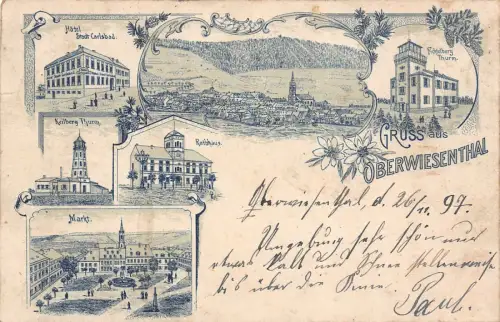 Hôtel
Stadt Carlsbad.
Fichtelberg
Thurm.
Keilberg Thurm.
Rathhaus.
Markt.
GRUSS aus
OBERWIESENTHAL
Oberwiesenthal, d. 26/11. 97.
Umgebung sehr schön nur
etwas kalt und Schnee stellenweise
bis über die Knie.
Paul.